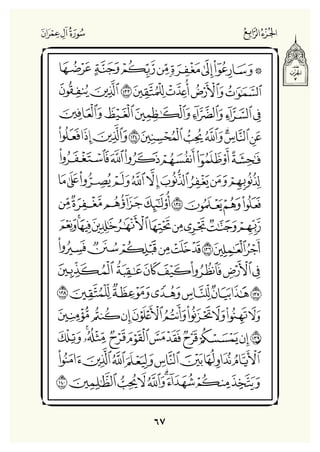 الجزء الرابع
سورة آل عمران
۞ وسارعوا إلى مغفرة من ربكم وجنة عرضها
السماوات والأرض أعدت للمتقين ١٣٣ الذين ينفقون
في السراء والضراء والكاظمين الغيظ والعافين
عن الناس والله يحب المحسنين ١٣٤ والذين إذا فعلوا
فاحشة أو ظلموا أنفسهم ذكروا الله فاستغفروا
لذنوبهم ومن يغفر الذنوب إلا الله ولم يصروا على ما
فعلوا وهم يعلمون ١٣٥ أولئك جزاؤهم مغفرة من
ربهم وجنات تجري من تحتها الأنهار خالدين فيها ونعم
أجر العاملين ١٣٦ قد خلت من قبلكم سنن فسيروا
في الأرض فانظروا كيف كان عاقبة المكذبين
١٣٧ هذا بيان للناس وهدى وموعظة للمتقين ١٣٨
ولا تهنوا ولا تحزنوا وأنتم الأعلون إن كنتم مؤمنين
١٣٩ إن يمسسكم قرح فقد مس القوم قرح مثله وتلك
الأيام نداولها بين الناس وليعلم الله الذين آمنوا
ويتخذ منكم شهداء والله لا يحب الظالمين ١٤٠
٦٧